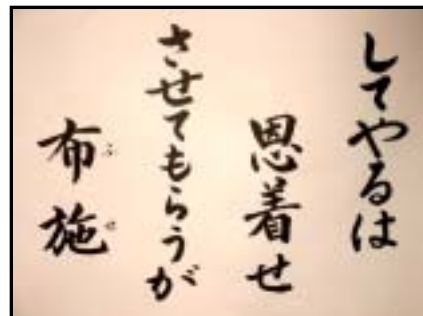 してやるは
恩着せ
させてもらうが
布施
ふせ